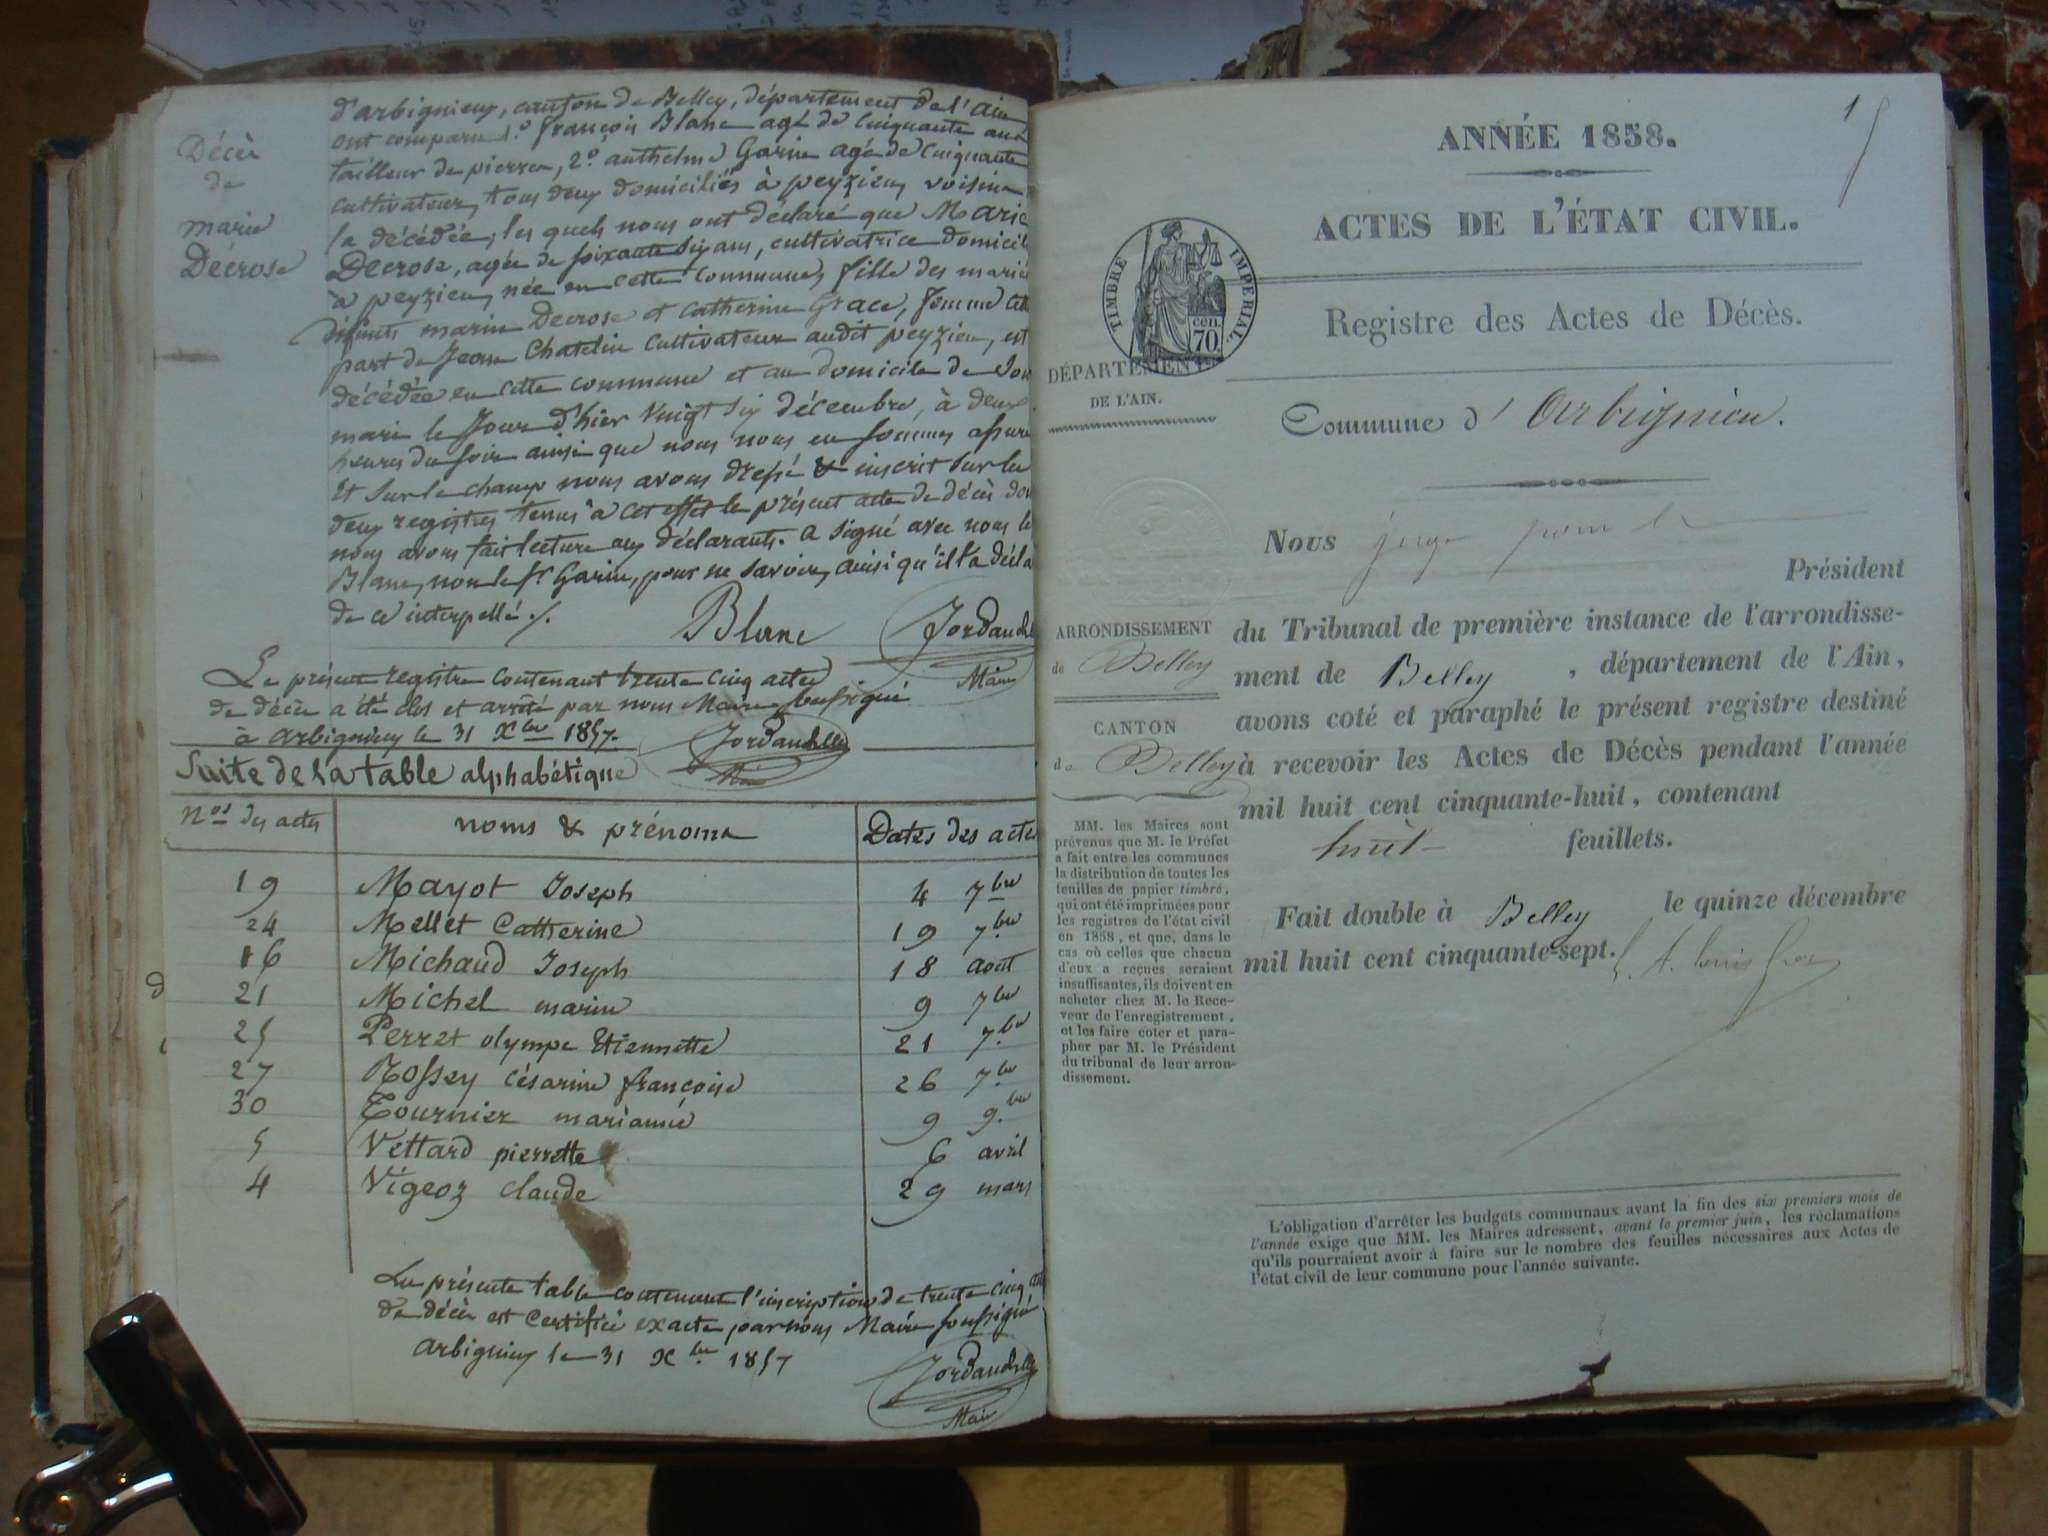 d'arbignieux, canton de Belley, département de l'Ain
ont comparu 1.º françois Blanc agé de Cinquante ans
tailleur de pierre, 2.º anthelme Garin agé de Cinquante
cultivateur, tous deux domiciliés à peyzieu, voisins
la décédée, les quels nous ont déclaré que Marie
Decrose, agée de soixante six ans, cultivatrice domicil
à peyzieu, née en cette Commune, fille des mariés
défunts marin Decrose et Catherine Grace, femme
part de Jean Chatelin Cultivateur audit peyzieu, est
décédée en cette commune et au domicile de Son
mari le Jour d'hier Vingt Six décembre, à deux
heures du soir ainsi que nous nous en sommes assuré
Et Sur le champ nous avons dressé & inscrit Sur les
deux registres tenus à cet effet le présent acte de décès don
nous avons fait lecture aux déclarants. a Signé avec nous le
Blanc, non le Sr Garin, pour ne Savoir, ainsi qu'il l'a décla
de ce interpellé ./.
Blanc
Jordan
Maire
Décès
de
marie
Décrose
Le présent registre Contenant trente Cinq actes
de décès a été clos et arrêté par nous Maire soussigné
à arbignieu le 31 Xbre 1857.
Maire
Suite de la table alphabétique
Nos des actes noms & prénoms Dates des actes
19 Mayot Joseph 4 7bre
24 Mellet Catherine 19 7bre
16 Michaud Joseph 18 août
21 Michel marin 9 7bre
25 Perret olympe Etiennette 21 7bre
27 Rossey césarine françoise 26 7bre
30 Tournier mariannée 9 9.bre
5 Vettard pierrette 6 avril
4 Vigeoz claude 29 mars
La présente table contenant l'inscription de trente cinq
de décès est Certifiée exacte par nous Maire soussigné
arbignieu le 31 Xbre 1857
Maire
1
ANNÉE 1858.
ACTES DE L'ÉTAT CIVIL.
TIMBRE IMPERIAL.
CEN.
70.
DÉPARTEMENT
DE L'AIN.
Registre des Actes de Décès.
Commune d' Arbignieu.
Nous juge pour le
Président
du Tribunal de première instance de l'arrondisse-
ment de Belley , département de l'Ain,
avons coté et paraphé le présent registre destiné
à recevoir les Actes de Décès pendant l'année
mil huit cent cinquante-huit, contenant
huit feuillets.
Fait double à Belley le quinze décembre
mil huit cent cinquante-sept.
ARRONDISSEMENT
de Belley
CANTON
de Belley
MM. les Maires sont
prévenus que M. le Préfet
a fait entre les communes
la distribution de toutes les
feuilles de papier timbré,
qui ont été imprimées pour
les registres de l'état civil
en 1858, et que, dans le
cas où celles que chacun
d'eux a reçues seraient
insuffisantes, ils doivent en
acheter chez M. le Rece-
veur de l'enregistrement,
et les faire coter et para-
pher par M. le Président
du tribunal de leur arron-
dissement.
L'obligation d'arrêter les budgets communaux avant la fin des six premiers mois de
l'année exige que MM. les Maires adressent, avant le premier juin, les réclamations
qu'ils pourraient avoir à faire sur le nombre des feuilles nécessaires aux Actes de
l'état civil de leur commune pour l'année suivante.